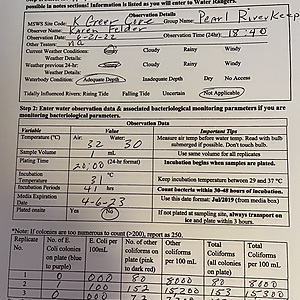 possible notes section! Information is listed as you will enter to Water Rangers.
Observation Details
MSWS Site Code: K Greer Cove Group Name: Pearl RiverKeep
Observer Name: Karen Felder
Observation Date: 6-21-22 Observation Time (24hr): 18:40
Other Testers: na
Current Weather Conditions: Sunny Cloudy Rainy Windy
Weather Details:
Weather previous 24-hr: Sunny Cloudy Rainy Windy
Weather Details:
Waterbody Condition: Adequate Depth Inadequate Depth Dry No Access
Tidally Influenced Rivers: Rising Tide Falling Tide Uncertain Not Applicable
Step 2: Enter water observation data & associated bacteriological monitoring parameters if you are
monitoring bacteriological parameters.
Observation Data
Variable Value Important Tips
Temperature (°C) Air: 32 Water: 30 Measure air temp before water temp. Read with bulb
submerged if possible. Don't touch bulb.
Sample Volume mL Use same volume for all replicates
Plating Time 20:00 (24-hr format) Incubation begins when samples are plated.
Incubation
Temperature 31 °C Keep incubation temperature between 29 and 37 °C
Incubation Periods 41 hrs Count bacteria within 30-48 hours of incubation.
Media Expiration
Date 4-6-23 Use this date format: Jul/2019 (from media box)
Plated onsite Yes No If not plated at sampling site, always transport on
ice and plate within 3 hours.
*Note: If colonies are too numerous to count (>200), report as 250.
Replicate
No. No. of E.
Coli colonies
on plate (blue
to purple) E. Coli per
100mL No. of other
coliforms on
plate (pink
to dark red) Other
coliforms
per 100 mL Total
Coliforms
(all colonies
on plate) Total
Coliforms
per 100 mL
1 0 000 80 8000 80 8000
2 1 100 152 15200 153 15300